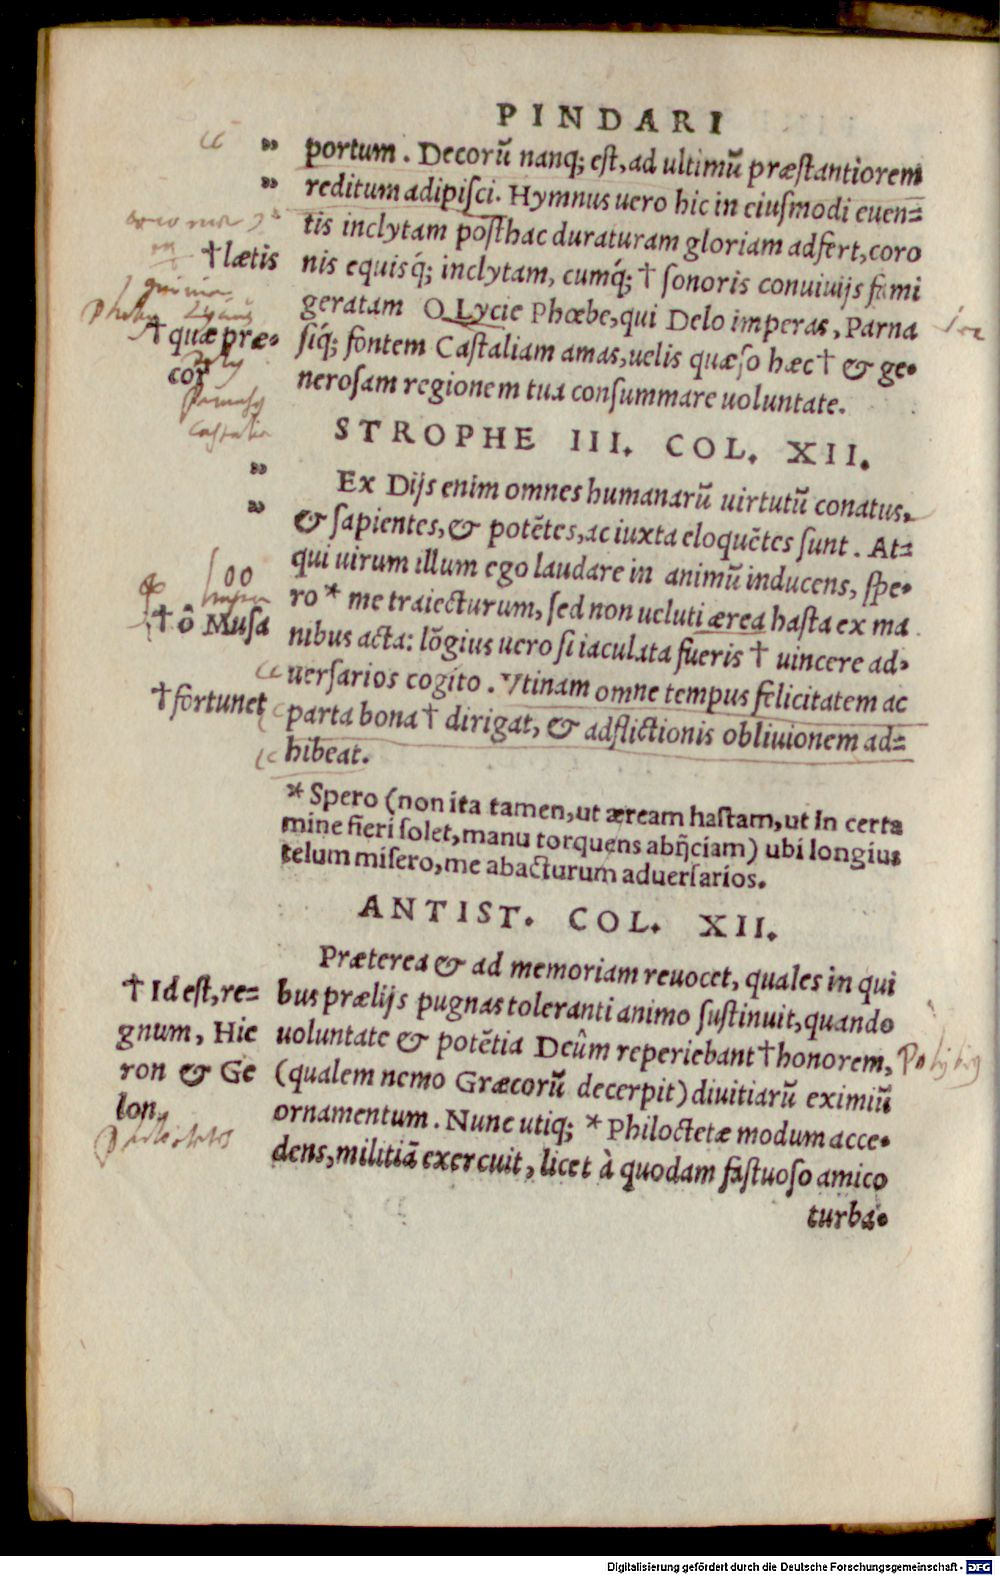 PINDARI
„ portum. Decorū nanq; est, ad ultimū præstantiorem
„ reditum adipisci. Hymnus uero hic in eiusmodi euen=
tis inclytam posthac duraturam gloriam adfert, coro
† lætis nis equisq́; inclytam, cumq́; † sonoris conuiuijs fami
geratam O Lycie Phœbe, qui Delo imperas, Parna
† quæ præ= siq́; fontem Castaliam amas, uelis quæso hæc † & ge=
cor nerosam regionem tua consummare uoluntate.
Castalia
STROPHE III. COL. XII.
„ Ex Dijs enim omnes humanarū uirtutū conatus,
„ & sapientes, & potētes, ac iuxta eloquētes sunt. At=
qui uirum illum ego laudare in animū inducens, spe=
ro * me traiecturum, sed non ueluti ærea hasta ex ma
† ô Musa nibus acta: lōgius uero si iaculata fueris † uincere ad=
uersarios cogito. Vtinam omne tempus felicitatem ac
† fortunet parta bona † dirigat, & adflictionis obliuionem ad=
hibeat.
* Spero (non ita tamen, ut æream hastam, ut in certa
mine fieri solet, manu torquens abijciam) ubi longius
telum misero, me abacturum aduersarios.
ANTIST. COL. XII.
Præterea & ad memoriam reuocet, quales in qui
† Id est, re= bus prælijs pugnas toleranti animo sustinuit, quando
gnum, Hie uoluntate & potētia Deûm reperiebant † honorem,
ron & Ge (qualem nemo Græcorū decerpit) diuitiarū eximiū
lon. ornamentum. Nunc utiq; * Philoctetæ modum acce=
dens, militiā exercuit, licet à quodam fastuoso amico
turba=
Digitalisierung gefördert durch die Deutsche Forschungsgemeinschaft - DFG